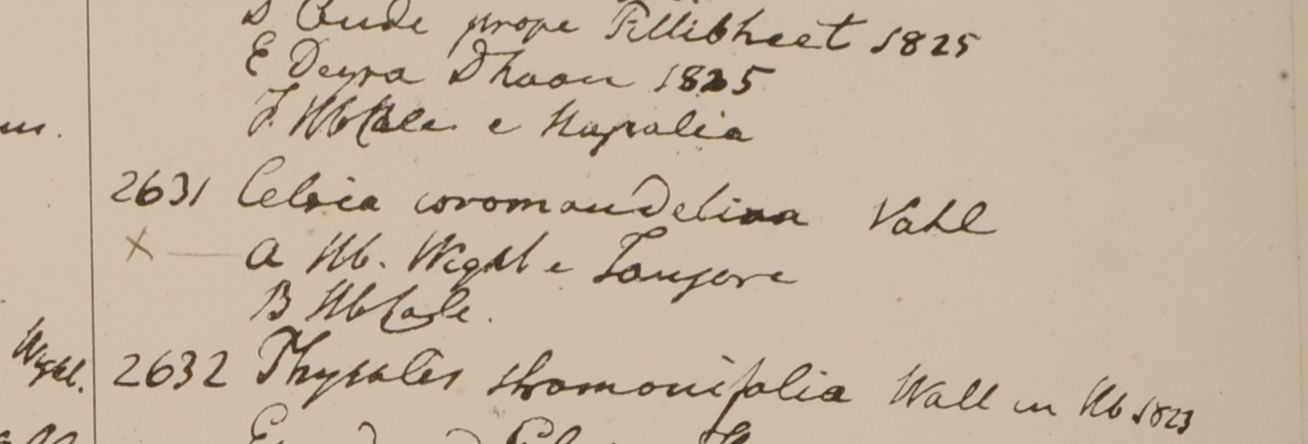 D Oude prope Pillibheet 1825
E Deyra Dhoon 1825
F. Hb Calc. e Napalia
us.
2631 Celsia coromandelina Vahl
X — a Hb. Wight e Tanjore
B Hb Calc.
Wight.
2632 Physalis stramonifolia Wall in Hb 1823